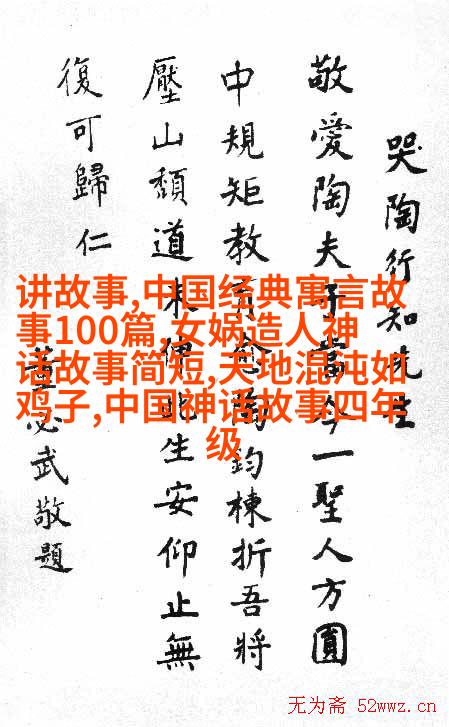 哭陶行知先生
敬愛陶夫子當今一聖人方圓
中規矩教育愈陶鈞棟折吾將
壓山頹道未伸此生安仰止無
復可歸仁
董必武敬題
讲故事,中国经典寓言故
事100篇,女娲造人神
话故事简短,天地混沌如
鸡子,中国神话故事四年
级
无为斋 52wwz.cn